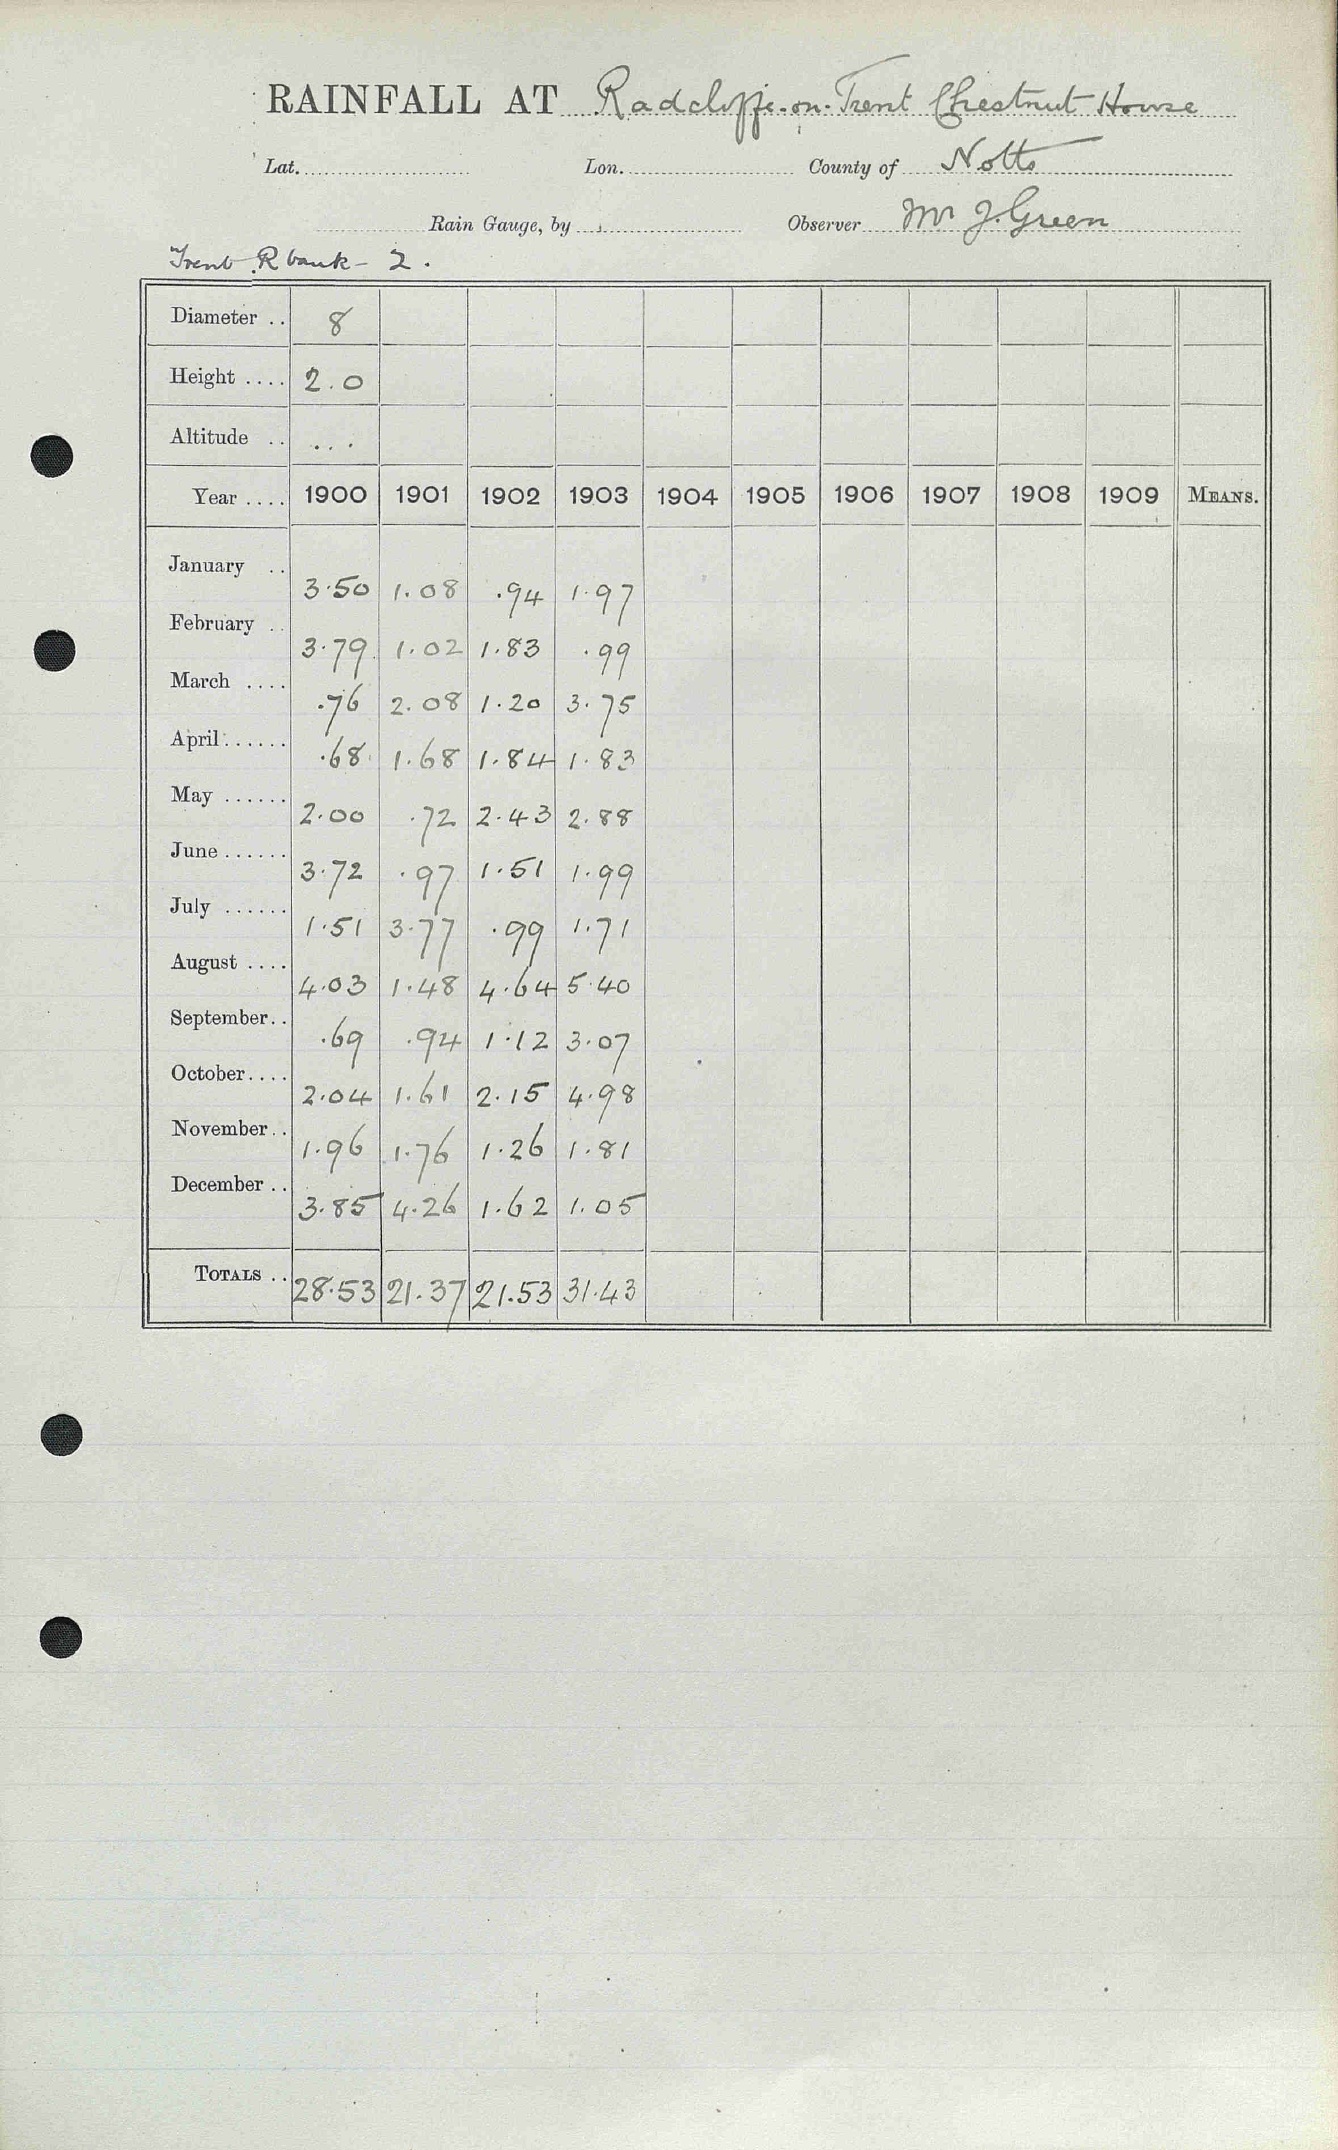 RAINFALL AT Radcliffe-on-Trent Chestnut House
Lat. Lon. County of Notts
Rain Gauge, by Observer Mr J. Green
Trent R bank - 2.
Diameter .. 8
Height .... 2.0
Altitude .. ...
Year .... 1900 1901 1902 1903 1904 1905 1906 1907 1908 1909 MEANS.
January .. 3.50 1.08 .94 1.97
February .. 3.79 1.02 1.83 .99
March .... .76 2.08 1.20 3.75
April ...... .68 1.68 1.84 1.83
May ...... 2.00 .72 2.43 2.88
June ...... 3.72 .97 1.51 1.99
July ...... 1.51 3.77 .99 1.71
August .... 4.03 1.48 4.64 5.40
September.. .69 .94 1.12 3.07
October.... 2.04 1.61 2.15 4.98
November.. 1.96 1.76 1.26 1.81
December .. 3.85 4.26 1.62 1.05
TOTALS .. 28.53 21.37 21.53 31.43